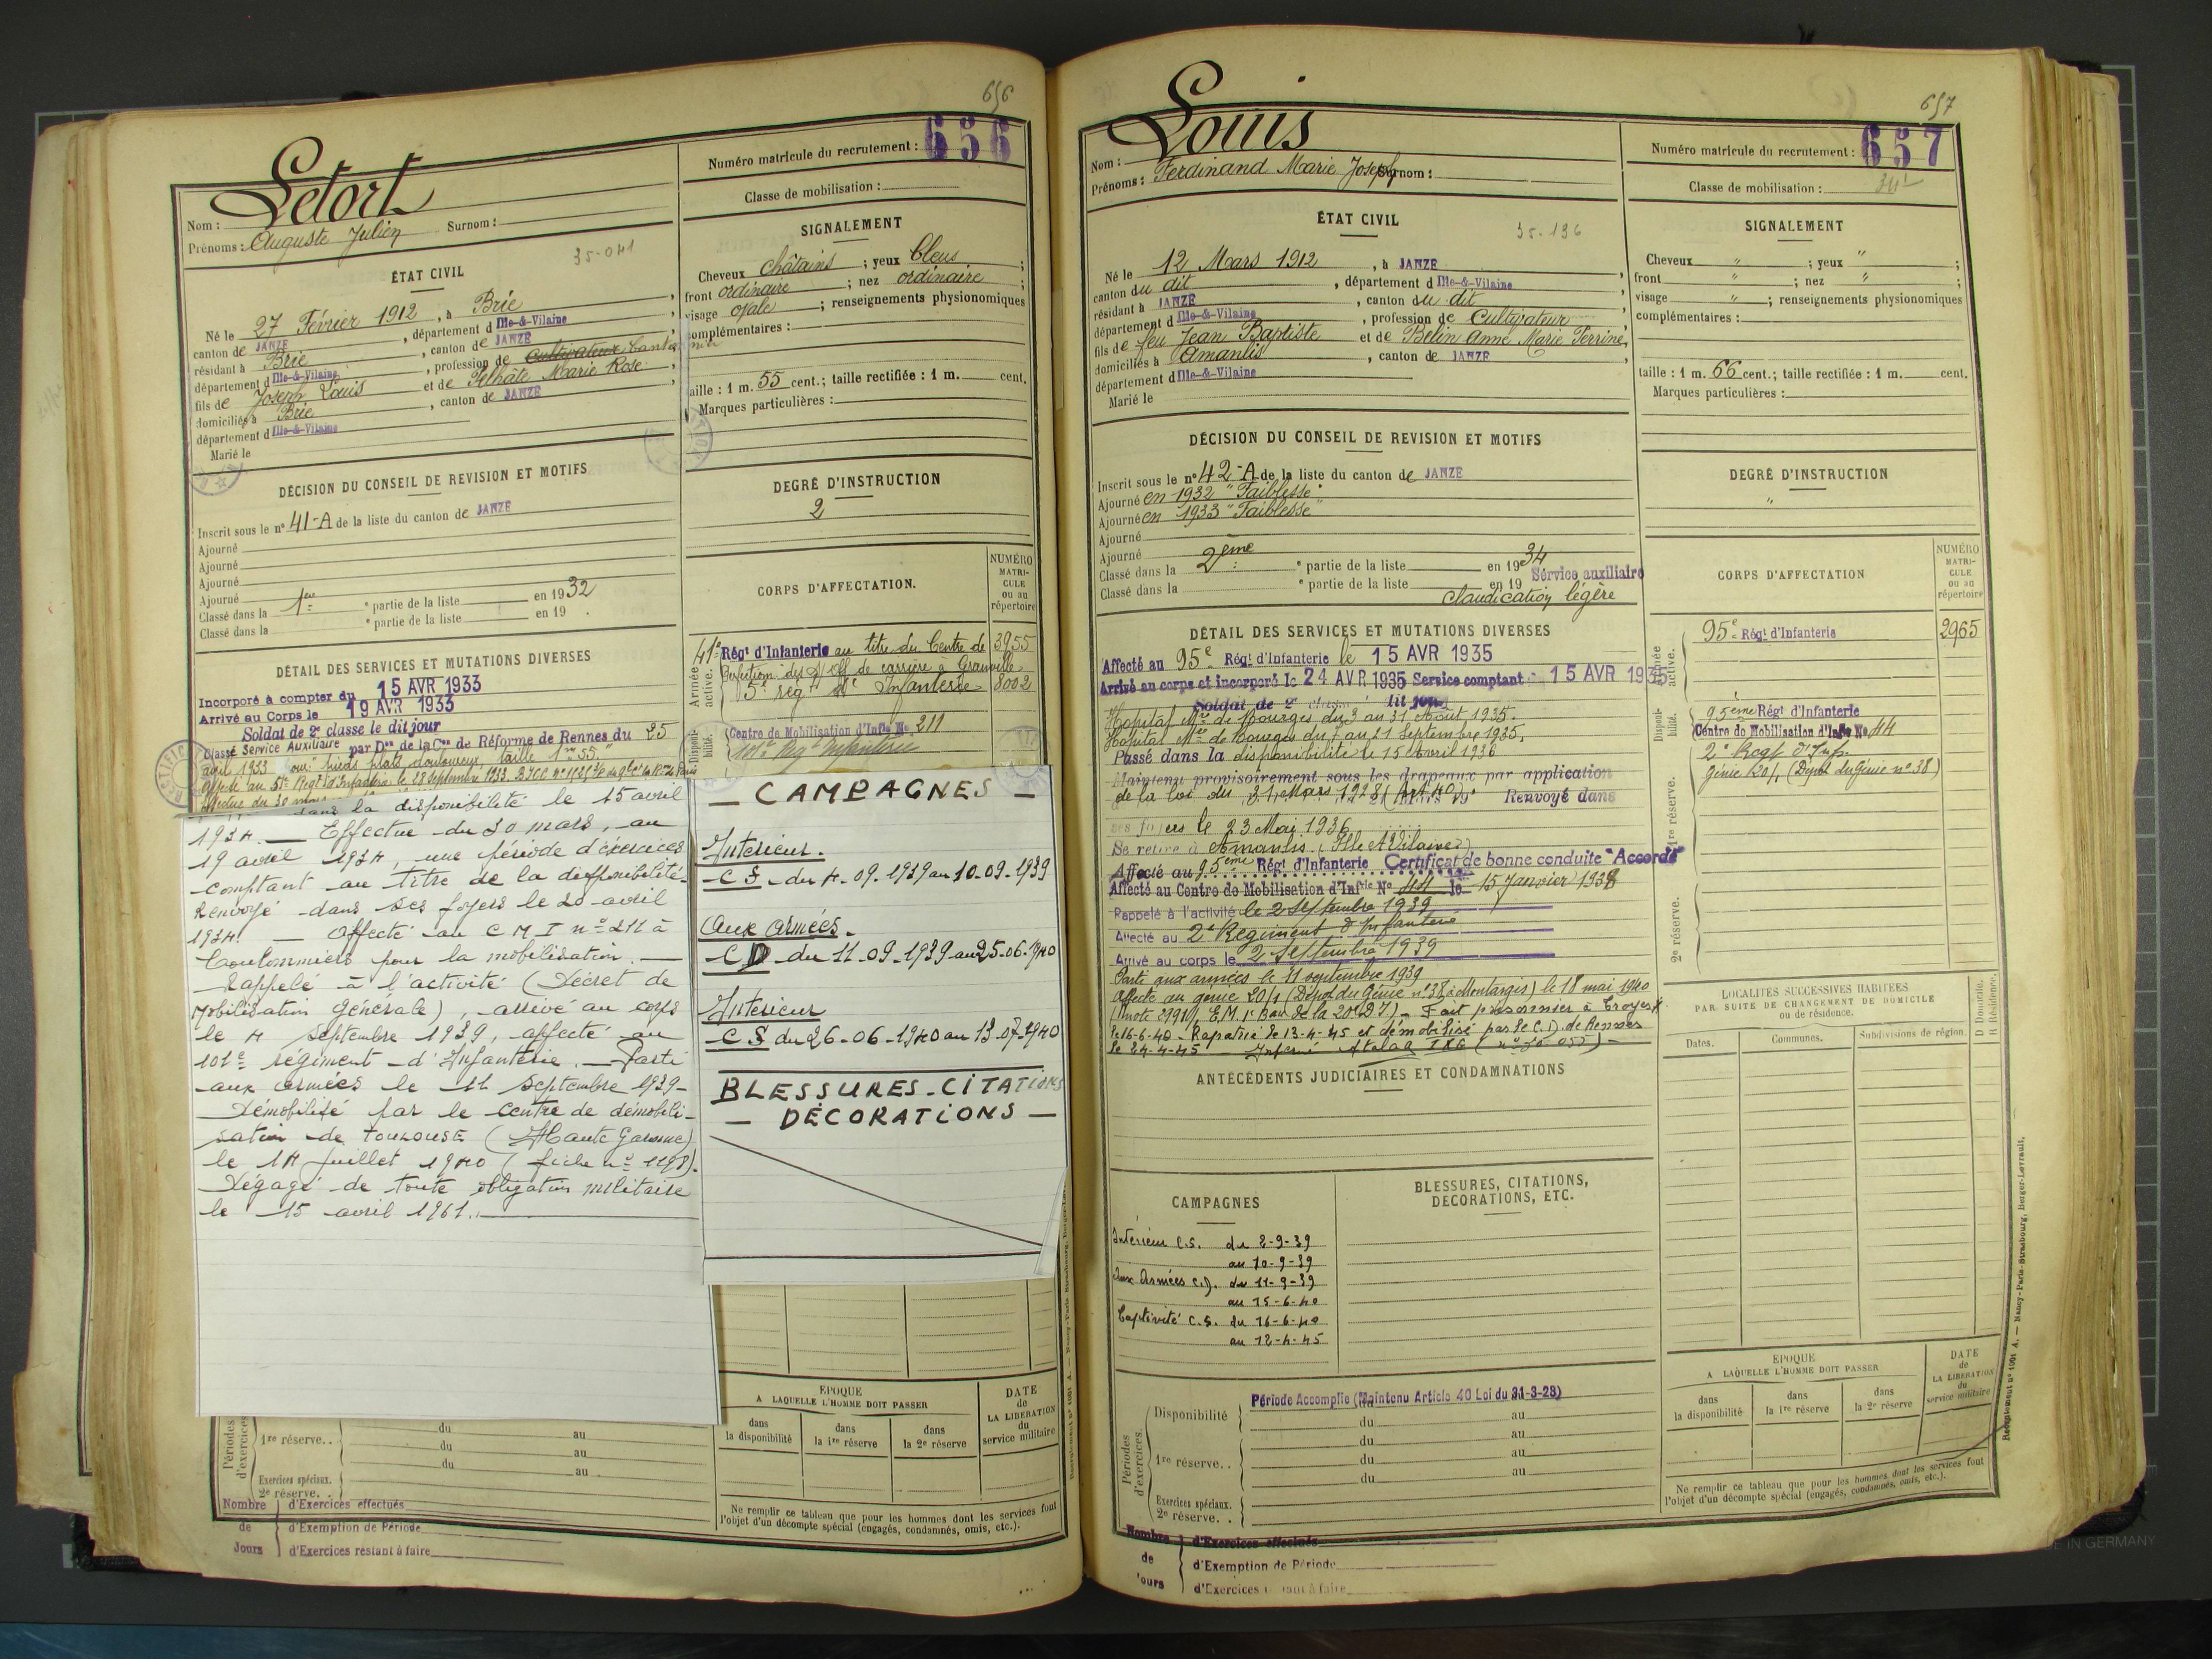 656
Letort
Numéro matricule du recrutement : 656
Nom :
Prénoms : Auguste Julien Surnom :
Classe de mobilisation :
35-041
ÉTAT CIVIL
Né le 27 Février 1912, à Brie
canton de JANZE, département d Ille-&-Vilaine
résidant à Brie, canton de JANZE
département d Ille-&-Vilaine, profession de Cultivateur
fils de Joseph Louis et de Pelhâte Marie Rose
domiciliés à Brie, canton de JANZE
département d Ille-&-Vilaine
Marié le
SIGNALEMENT
Cheveux châtains ; yeux bleus ;
front ordinaire ; nez ordinaire ;
visage ovale ; renseignements physionomiques
complémentaires :
taille : 1 m. 55 cent.; taille rectifiée : 1 m. cent.
Marques particulières :
DÉCISION DU CONSEIL DE REVISION ET MOTIFS
Inscrit sous le n° 41-A de la liste du canton de JANZE
Ajourné
Ajourné
Ajourné
Ajourné
Classé dans la 1ère partie de la liste en 1932
Classé dans la partie de la liste en 19 .
DEGRÉ D'INSTRUCTION
2
DÉTAIL DES SERVICES ET MUTATIONS DIVERSES
Incorporé à compter du 15 AVR 1933
Arrivé au Corps le 19 AVR 1933
Soldat de 2e classe le dit jour
Classé Service Auxiliaire par Don de la Con de Réforme de Rennes du 25
avril 1933 pour "pieds plats douloureux, taille 1m 55."
dans la disponibilité le 15 avril
1934. — Effectue du 30 mars, au
19 avril 1934, une période d'exercices
comptant au titre de la disponibilité.
Renvoyé dans ses foyers le 20 avril
1934. — Affecté au C M I n° 211 à
Coulommiers pour la mobilisation. —
Rappelé à l'activité (Décret de
mobilisation générale), arrivé au corps
le 4 septembre 1939, affecté au
101e régiment d'Infanterie. — Parti
aux armées le 11 septembre 1939 —
Démobilisé par le centre de démobili-
sation de TOULOUSE (Haute Garonne)
le 14 juillet 1940 (fiche n° 1198).
Dégagé de toute obligation militaire
le 15 avril 1961.
CORPS D'AFFECTATION.
NUMÉRO
MATRI-
CULE
ou au
répertoire
Armée active.
41e Régt d'Infanterie au titre du Centre de 3955
Perfection des S/Off de carrière à Granville
5e régt d'Infanterie 8002
Disponi-
bilité.
Centre de Mobilisation d'Infie No 211
101e Régt Infanterie
— CAMPAGNES —
Intérieur.
C S du 4-09-1939 au 10-09-1939
Aux armées.
C D du 11-09-1939 au 25-06-1940
Intérieur
C S du 26-06-1940 au 13-07-1940
BLESSURES_CITATIONS
— DÉCORATIONS —
Périodes
d'exercices
1re réserve..
du au
du au
du au
Exercices spéciaux.
2e réserve. .
Nombre de Jours
d'Exercices effectués
d'Exemption de Période
d'Exercices restant à faire
ÉPOQUE
A LAQUELLE L'HOMME DOIT PASSER
dans
la disponibilité
dans
la 1re réserve
dans
la 2e réserve
DATE
de
LA LIBÉRATION
du
service militaire
Ne remplir ce tableau que pour les hommes dont les services font
l'objet d'un décompte spécial (engagés, condamnés, omis, etc.).
657
Louis
Numéro matricule du recrutement : 657
Nom :
Prénoms : Ferdinand Marie Joseph Surnom :
Classe de mobilisation :
35-136
ÉTAT CIVIL
Né le 12 Mars 1912, à JANZE
canton du dit, département d Ille-&-Vilaine
résidant à JANZE, canton du dit
département d Ille-&-Vilaine, profession de Cultivateur
fils de feu Jean Baptiste et de Belin Anne Marie Perrine
domiciliés à Amanlis, canton de JANZE
département d Ille-&-Vilaine
Marié le
SIGNALEMENT
Cheveux " ; yeux " ;
front " ; nez " ;
visage " ; renseignements physionomiques
complémentaires :
taille : 1 m. 66 cent.; taille rectifiée : 1 m. cent.
Marques particulières :
DÉCISION DU CONSEIL DE REVISION ET MOTIFS
Inscrit sous le n° 42-A de la liste du canton de JANZE
Ajourné en 1932 "Faiblesse"
Ajourné en 1933 "Faiblesse"
Ajourné
Ajourné
Classé dans la 2ème partie de la liste en 1934
Classé dans la partie de la liste en 19 Service auxiliaire
claudication légère
DEGRÉ D'INSTRUCTION
"
DÉTAIL DES SERVICES ET MUTATIONS DIVERSES
Affecté au 95e Régt d'Infanterie le 15 AVR 1935
Arrivé au corps et incorporé le 24 AVR 1935 Service comptant 15 AVR 1935
Soldat de 2e classe dit jour
Hopital Mre de Bourges du 3 au 31 Août 1935.
Hopital Mre de Bourges du 7 au 21 Septembre 1935.
Passé dans la disponibilité le 15 Avril 1936
Maintenu provisoirement sous les drapeaux par application
de la loi du 31 Mars 1928 (Art 40) Renvoyé dans
ses foyers le 23 Mai 1936
Se retire à Amanlis (Ille & Vilaine)
Affecté au 95ème Régt d'Infanterie Certificat de bonne conduite "Accordé"
Affecté au Centre de Mobilisation d'Infie No 44 le 15 Janvier 1938
Rappelé à l'activité le 2 Septembre 1939
Affecté au 2e Régiment d'Infanterie
Arrivé au corps le 2 Septembre 1939
Parti aux armées le 11 septembre 1939
Affecté au génie 20/1 (Dépot du Génie n° 38 à Montargis) le 18 mai 1940
Fait prisonnier à Troyes
le 16-6-40 - Rapatrié le 13-4-45 et démobilisé par le C.D. de Rennes
le 24-4-45 Interné Stalag
CORPS D'AFFECTATION
NUMÉRO
MATRI-
CULE
ou au
répertoire
Armée active.
95e Régt d'Infanterie 2965
Disponi-
bilité.
95ème Régt d'Infanterie
Centre de Mobilisation d'Infie No 44
2e Regt d'Infie
Génie 20/1 (Dépot du Génie n° 38)
1re réserve.
2e réserve.
ANTÉCÉDENTS JUDICIAIRES ET CONDAMNATIONS
LOCALITÉS SUCCESSIVES HABITÉES
PAR SUITE DE CHANGEMENT DE DOMICILE
ou de résidence.
Dates.
Communes.
Subdivisions de région.
D Domicile.
R Résidence.
CAMPAGNES
Intérieur C.S. du 2-9-39
au 10-9-39
Aux Armées C.D. du 11-9-39
au 15-6-40
Captivité C.S. du 16-6-40
au 12-4-45
BLESSURES, CITATIONS,
DÉCORATIONS, ETC.
Périodes
d'exercices.
Période Accomplie (Maintenu Article 40 Loi du 31-3-28)
Disponibilité
du au
du au
1re réserve. .
du au
du au
Exercices spéciaux.
2e réserve. .
Nombre de Jours
d'Exercices effectués
d'Exemption de Période
d'Exercices restant à faire
ÉPOQUE
A LAQUELLE L'HOMME DOIT PASSER
dans
la disponibilité
dans
la 1re réserve
dans
la 2e réserve
DATE
de
LA LIBÉRATION
du
service militaire
Ne remplir ce tableau que pour les hommes dont les services font
l'objet d'un décompte spécial (engagés, condamnés, omis, etc.).
Recrutement n° 1091 A. — Nancy-Paris-Strasbourg, Berger-Levrault.
E IN GERMANY